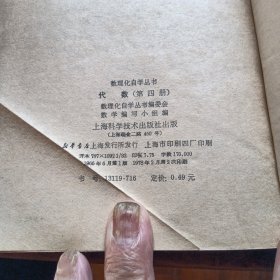 数理化自学丛书
代 数 (第四册)
数理化自学丛书编委会
数学编写小组编
上海科学技术出版社出版
(上海瑞金二路 450 号)
新华书店上海发行所发行 上海市印刷四厂印刷
开本 787×1092 1/32 印张 7.75 字数 170,000
1966年6月第1版 1978年2月第2次印刷
书号:13119·716 定价:0.49元